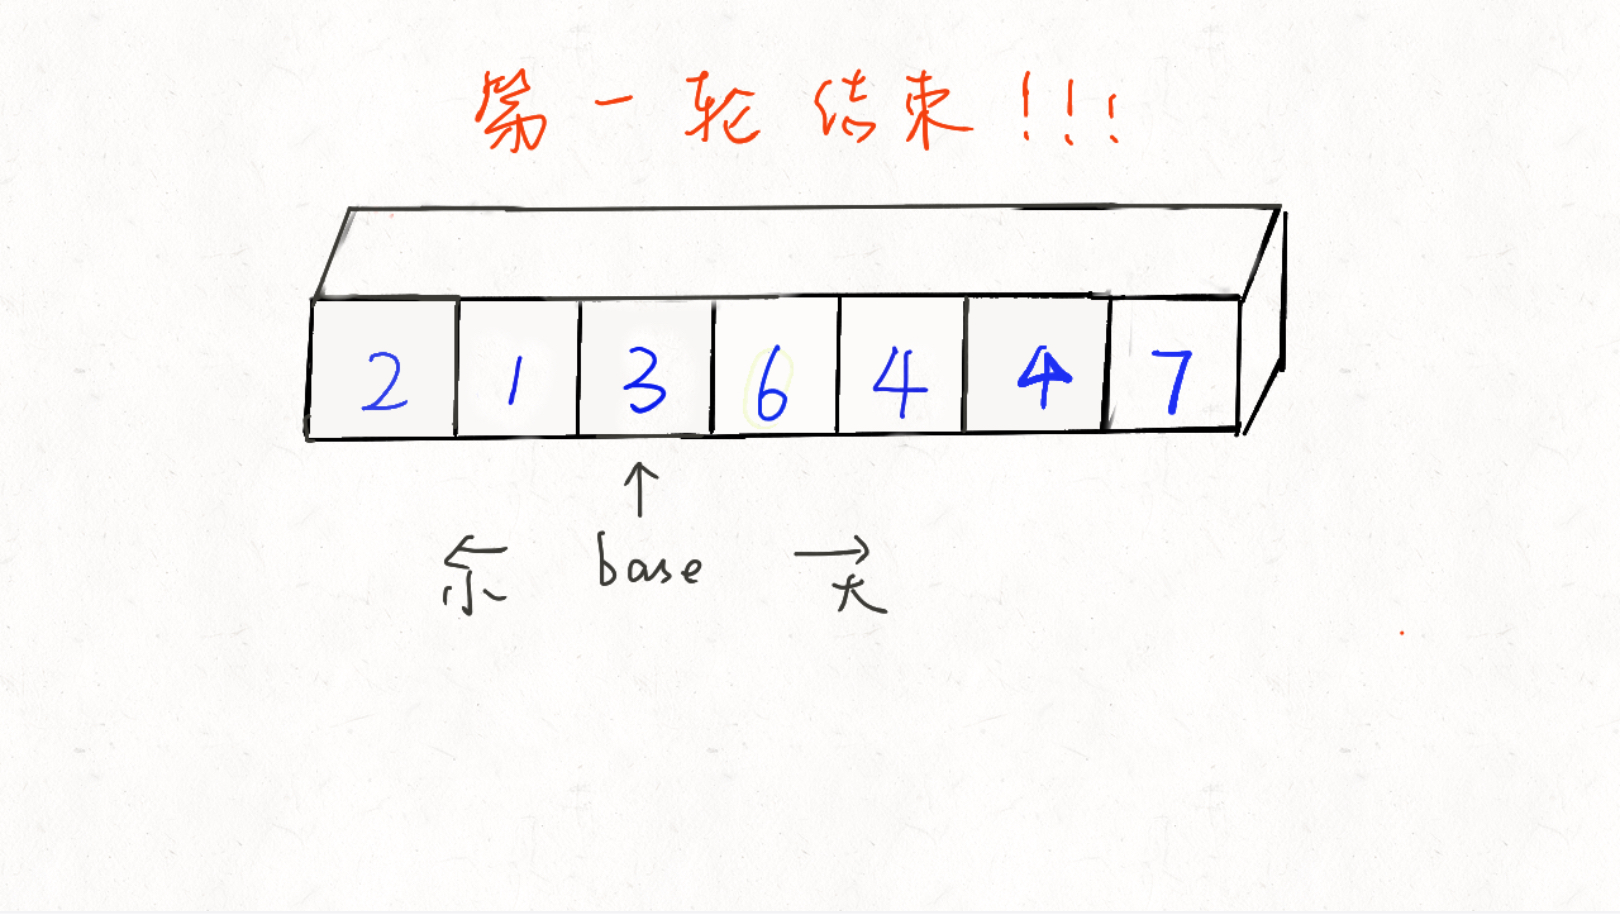 第一轮结束!!!
2 1 3 6 4 4 7
↑
← base →
小 大